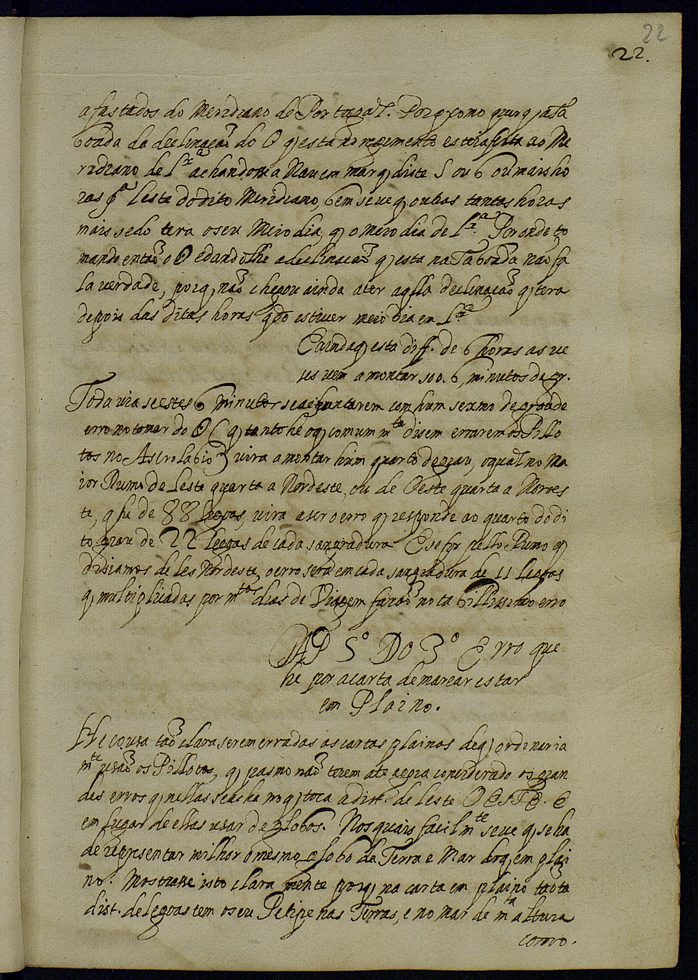 22
22.
afastados do Meridiano de Portugal. Porq como quer q̃ a Ta
boada da declinação do O q̃ esta no regimento esteja feita ao Me
ridiano de Lxª achandosse a Nau em mar q̃ diste 5 ou 6 ou mais ho
ras pª Leste do dito Meridiano, bem se ve q̃ outras tantas horas
mais sedo tera o seu Meio dia, q̃ o meio dia de Lxª. Por onde to
mando então o O e dandolhe a declinação q̃ esta na Taboada não fa
la verdade, porq̃ não chegou ainda a ter aq̃lla declinação q̃ tera
depois das ditas horas qdo estiver meio dia em Lxª
E ainda q̃ esta diff. de 6 horas as ve
ses vem a montar so 6 minutos de gr.
Toda via se estes 6 minutos se ajuntarem com hum sexmo de grade
erro no tomar do O ( q̃ tanto hé o q̃ comum mte disem errarem os Pillo
tos no Astrolabio ) vira a montar hum quarto de grau, o qual no Ma
ior Rumo de Leste quarta a Nordeste, ou de Oeste quarta a Noroes
te, q̃ he de 88 legoas, vira a ser o erro q̃ responde ao quarto do di
to grau de 22 legoas de cada sangradura E se for pello Rumo q̃
disiamos de les Nordeste, o erro será em cada sangradura de 11 legoas
q̃ multiplicadas por mtos dias de Viagem farão notabillissimo erro
CAP 5º DO 3º Erro que
hé por a carta de marear estar
em Plaino.
He cousa tão clara serem erradas as cartas plainas de q̃ ordinaria
mte usão os Pillotos, q̃ pasmo não terem ate agora considerado os gran
des erros q̃ nellas se acha no q̃ toca a dist. de leste OESTE. E
em lugar de ellas usar de globos. Nos quais facilmte se ve q̃ se ha
de representar milhor o mesmo globo da Terra e Mar do q̃ em plai
no. Mostrasse isto claramente porq̃ na carta em plaino tanta
dist. de legoas tem o seu Pelipe nas Terras, e no mar de mta altura
como.